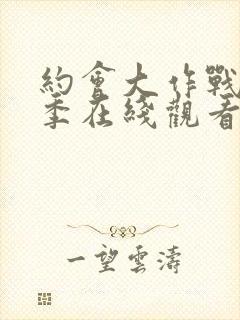 約會大作戰
季在綫觀看
一望雲濤